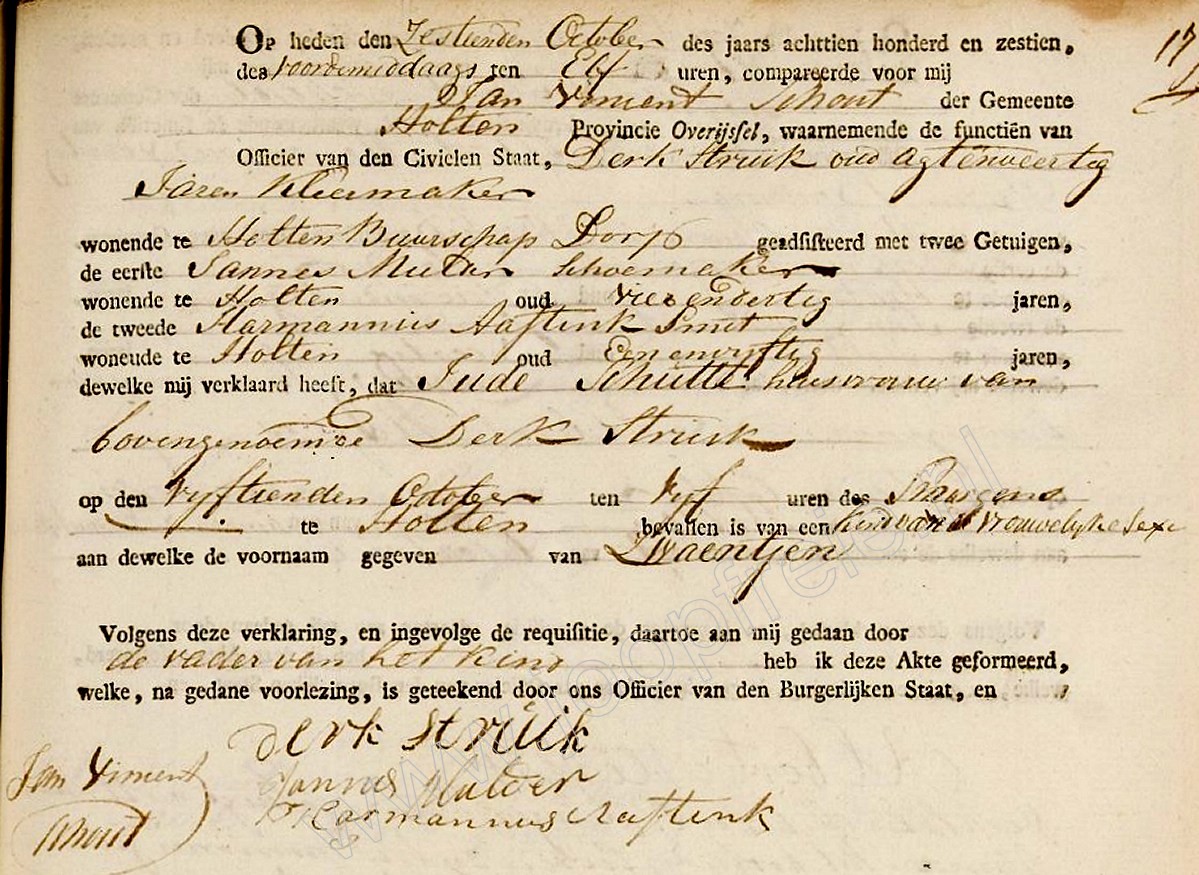 Op heden den Zestienden October des jaars achttien honderd en zestien,
17
des voordemiddaags ten Elf uren, compareerde voor mij
Jan Viment Schout der Gemeente
Holten Provincie Overijssel, waarnemende de functiën van
Officier van den Civielen Staat, Derk Struik oud agtenveertig
Jaren Kleermaker
wonende te Holten Buurschap Dorp geadsisteerd met twee Getuigen,
de eerste Jannes Mulder Schoemaker
wonende te Holten oud Vierendertig jaren,
de tweede Harmannus Aaftink Smit
wonende te Holten oud Een envyftig jaren,
dewelke mij verklaard heeft, dat Jude Schutte huisvrouw van
bovengenoemde Derk Struik
op den Vyftienden October ten Vyf uren des Smorgens
te Holten bevallen is van een Kind van de Vrouwelyke Sexe
aan dewelke de voornaam gegeven van Zwaentjen
Volgens deze verklaring, en ingevolge de requisitie, daartoe aan mij gedaan door
de vader van het kind heb ik deze Akte geformeerd,
welke, na gedane voorlezing, is geteekend door ons Officier van den Burgerlijken Staat, en
Derk Struik
Jan Viment Jannes Mulder
Schout Harmannus Aaftink